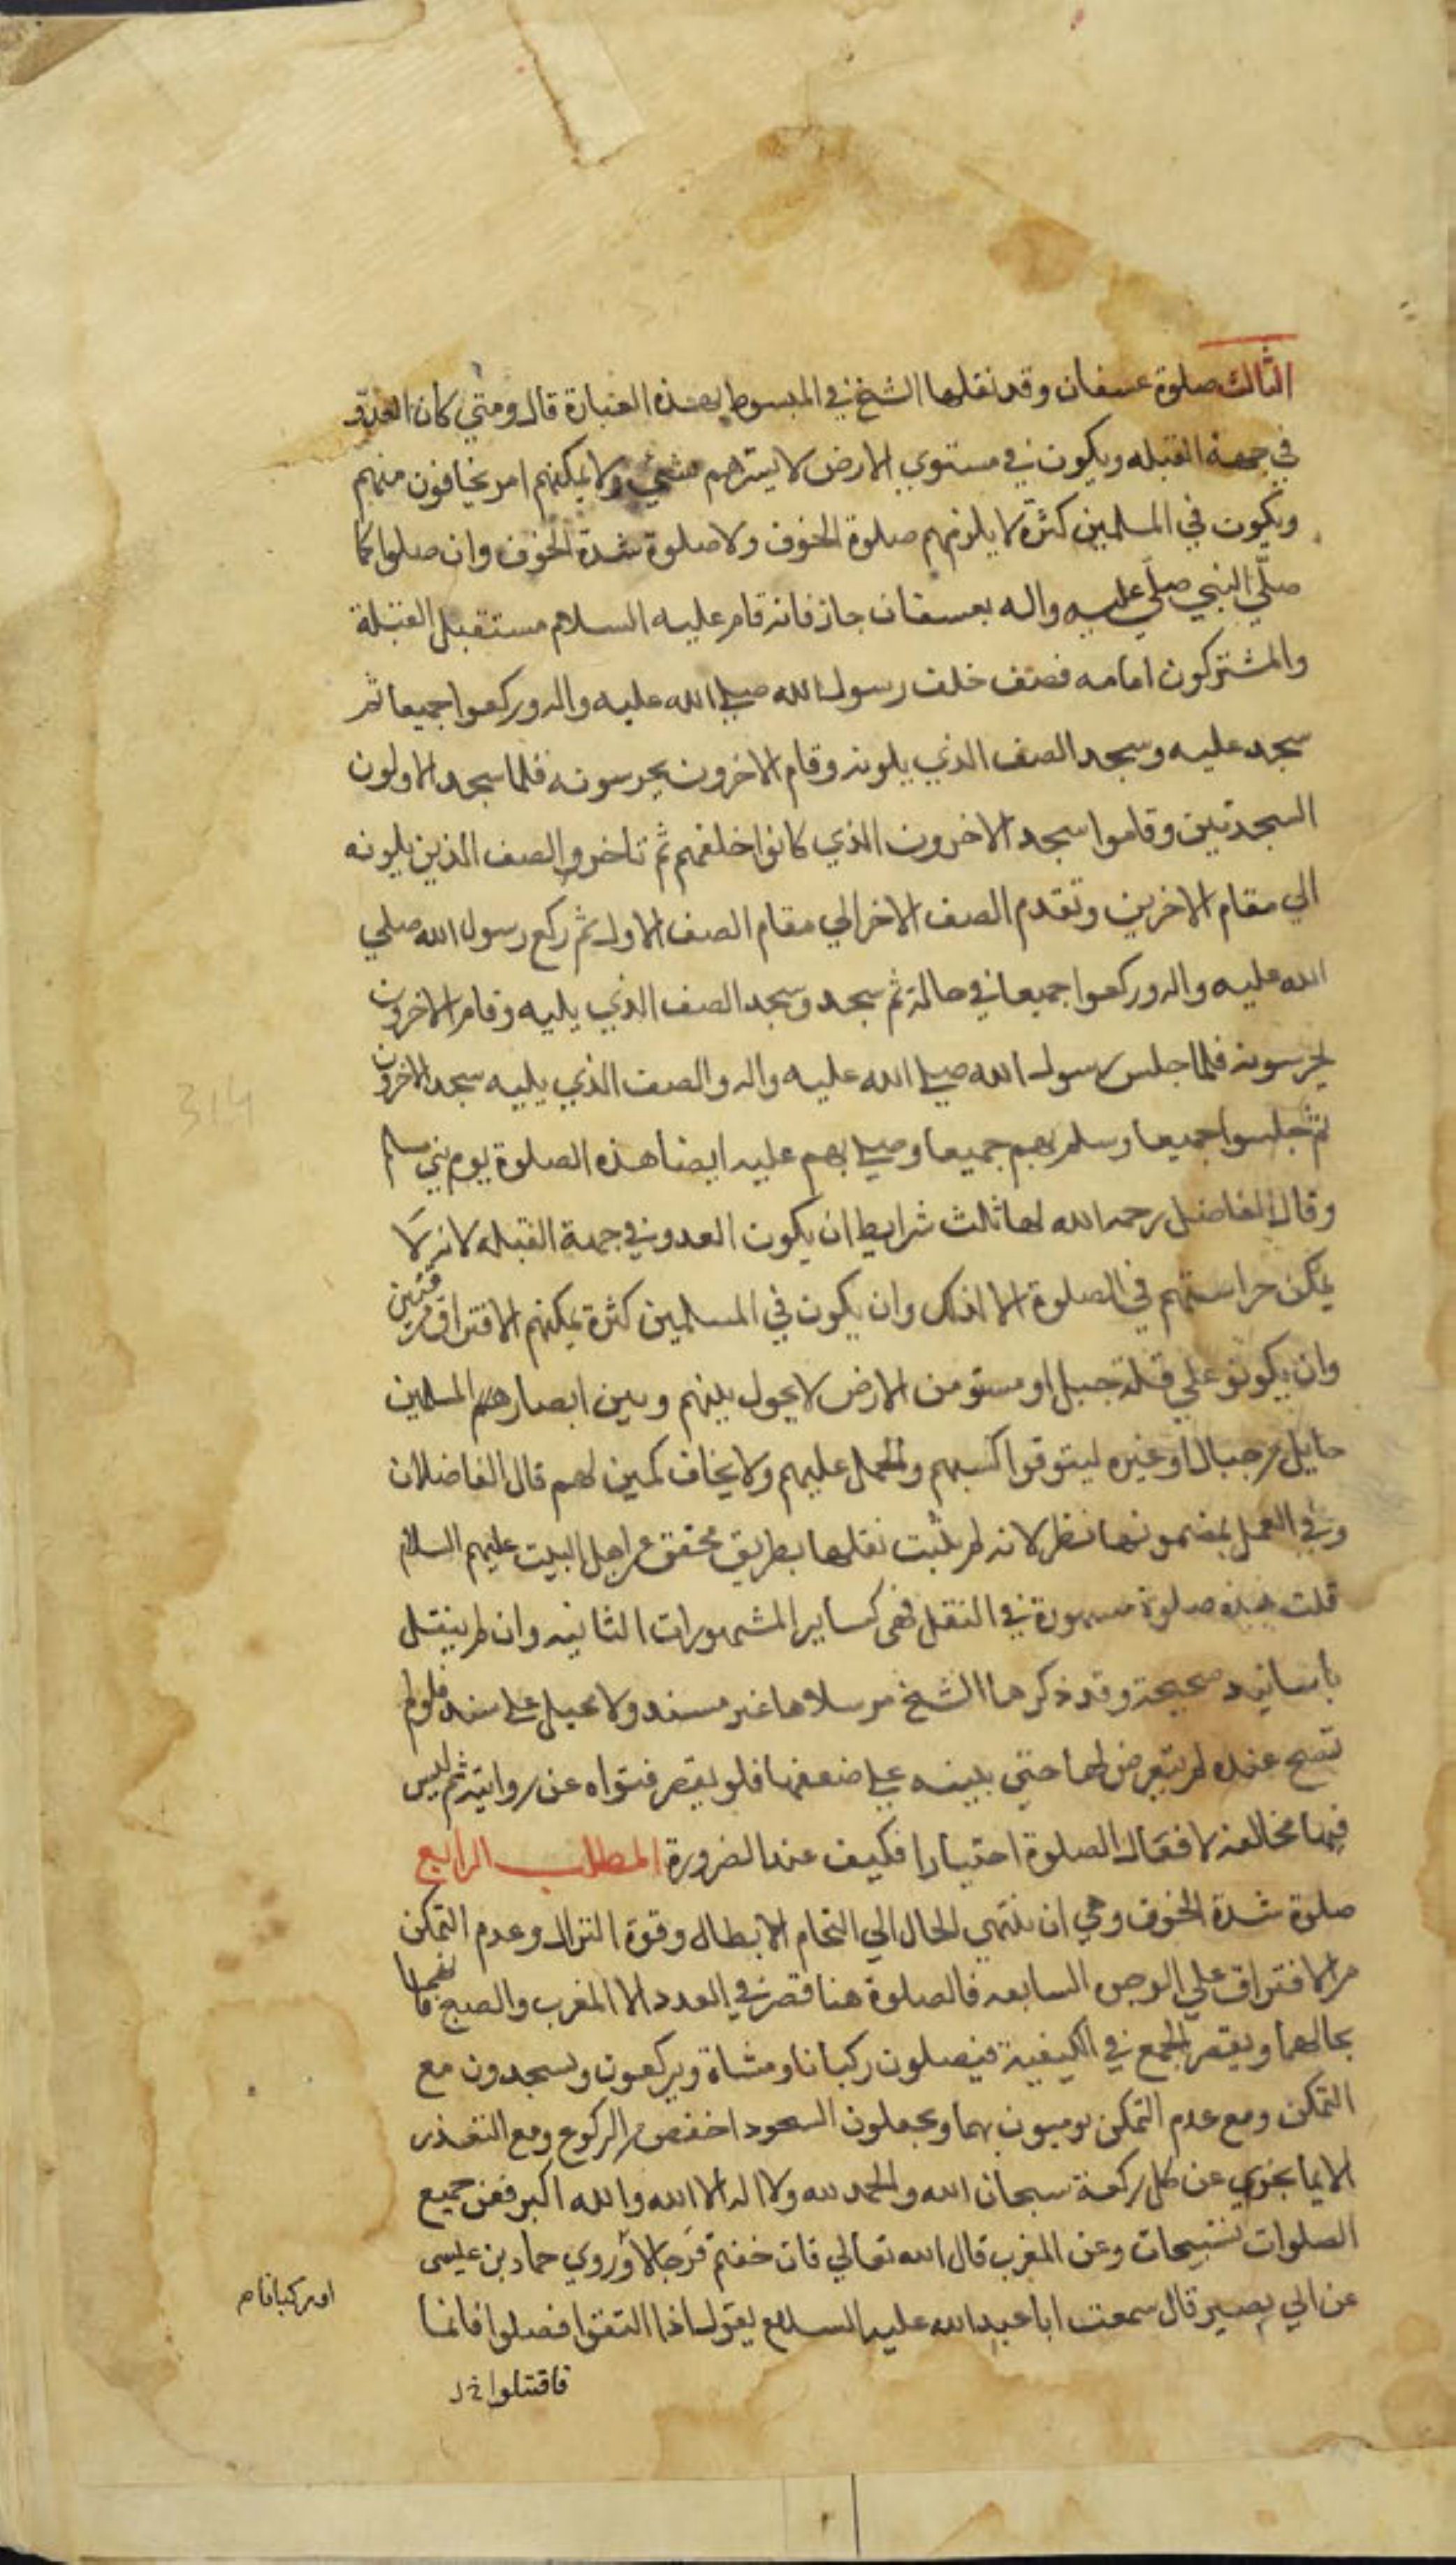 الثالث صلوة عسفان وقد نقلها الشيخ في المبسوط بهذه العبارة قال ومتي كان العدو
في جهة القبله ويكون في مستوي الارض لا يسترهم شيئ ولا يمكنهم امر يخافون منهم
ويكون في المسلمين كثرة لا يلزمهم صلوة الخوف ولا صلوة شدة الخوف وان صلوا كما
صلّي النبي صلي عليه واله بعسفان جاز فانه قام عليه السلام مستقبل القبلة
والمشتركون امامه فصف خلف رسول الله صلي الله عليه واله وركعوا جميعا ثم
سجد عليه وسجد الصف الذي يلونه وقام الاخرون يحرسونه فلما سجد الاولون
السجدتين وقاموا سجد الاخرون الذي كانوا خلفهم ثم تاخر والصف الذين يلونه
الي مقام الاخرين وتقدم الصف الاخر الي مقام الصف الاول ثم ركع رسول الله صلي
الله عليه واله وركعوا جميعا في حالة ثم سجد وسجد الصف الذي يليه وقام الاخرون
يحرسونه فلما جلس رسول الله صلي الله عليه واله والصف الذي يليه سجد الاخرون
ثم جلسوا جميعا وسلم بهم جميعا وصلي بهم عليه ايضا هذه الصلوة يوم بني سليم
وقال الفاضل رحمه الله لها ثالث شرايط ان يكون العدو في جهة القبله لانه لا
يمكن حراستهم في الصلوة الا لذلك وان يكون في المسلمين كثرة يمكنهم الافتراق فرقتين
وان يكونو علي قلة جبل او مستو من الارض لا يحول بينهم وبين ابصارهم المسلمين
حايل من جبال او غيره ليتوقوا كبسهم والحمل عليهم ولا يخاف كمين لهم قال الفاضلان
وفي العمل بمضمونها نظر لانه لم يثبت نقلها بطريق محقق عن اهل البيت عليهم السلام
قلت هذه صلوة مشهورة في النقل فهى كساير المشهورات الثانيه وان لم ينقل
باسانيد صحيحة وقد ذكرها الشيخ مرسلا ها غير مسند ولا محيل علي سند فلولم
تصح عنده لم يتعرض لها حتي يبينه علي ضعفها فلو يقصر فتواه عن روايته ثم ليس
فيها مخالفة لا فعال الصلوة اختيارا فكيف عند الضرورة المطلب الرابع
صلوة شدة الخوف وهي ان ينتهي الحال الي التحام الابطال وقوة النزال وعدم التمكن
من الافتراق علي الوجه السابعه فالصلوة هنا قصر في العدد الا المغرب والصبح فانهما
بحالهما ويقصر الجمع في الكيفية فيصلون ركبانا ومشاة ويركعون ويسجدون مع
التمكن ومع عدم التمكن يوميون بهما ويجعلون السجود اخفض من الركوع ومع التعذر
الايما يجزي عن كل ركعة سبحان الله والحمد لله ولا اله الا الله والله اكبر فعن جميع
الصلوات تسبيحات وعن المغرب قال الله تعالي فان خفتم فرجالا وروي حماد بن عيسى
او ركبانا م
عن ابي بصير قال سمعت ابا عبد الله عليه السلام يقول اذا التقوا فصلوا فانما
فاقتتلوا خ ل